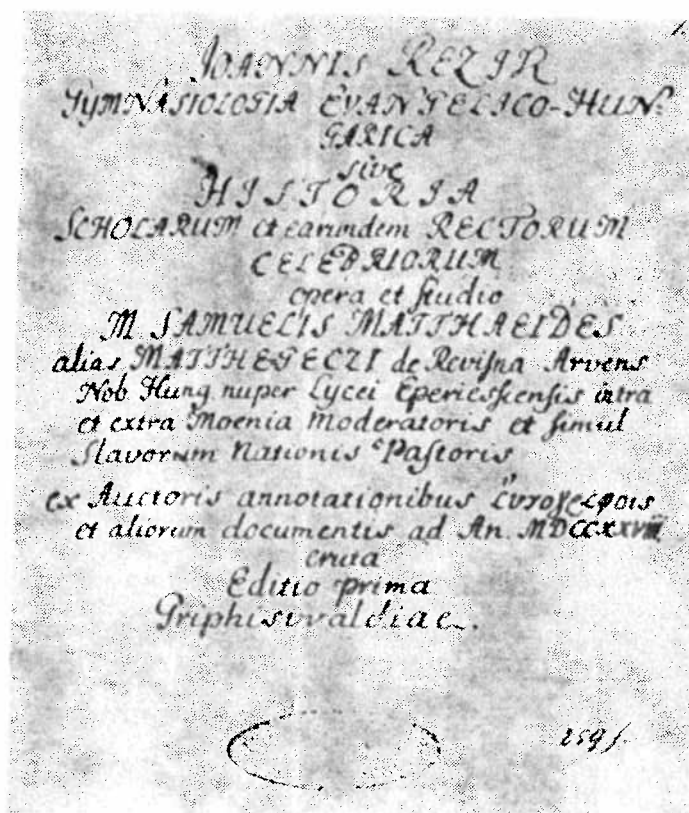 1.
IOANNIS REZIK
GYMNASIOLOGIA EVANGELICO-HUN:
GARICA
sive
HISTORIA
SCHOLARUM et earumdem RECTORUM
CELEBRIORUM
opera et studio
M. SAMUELIS MATTHAEIDES
alias MATTHEGECZI de Revisna Arvens
Nob. Hung nuper Lycei Eperiessiensis intra
et extra Moenia Moderatoris et simul
Slavorum Nationis Pastoris
ex Auctoris annotationibus
et aliorum documentis ad An. MDCCXXVIII
eruta
Editio prima
Griphiswaldiae.